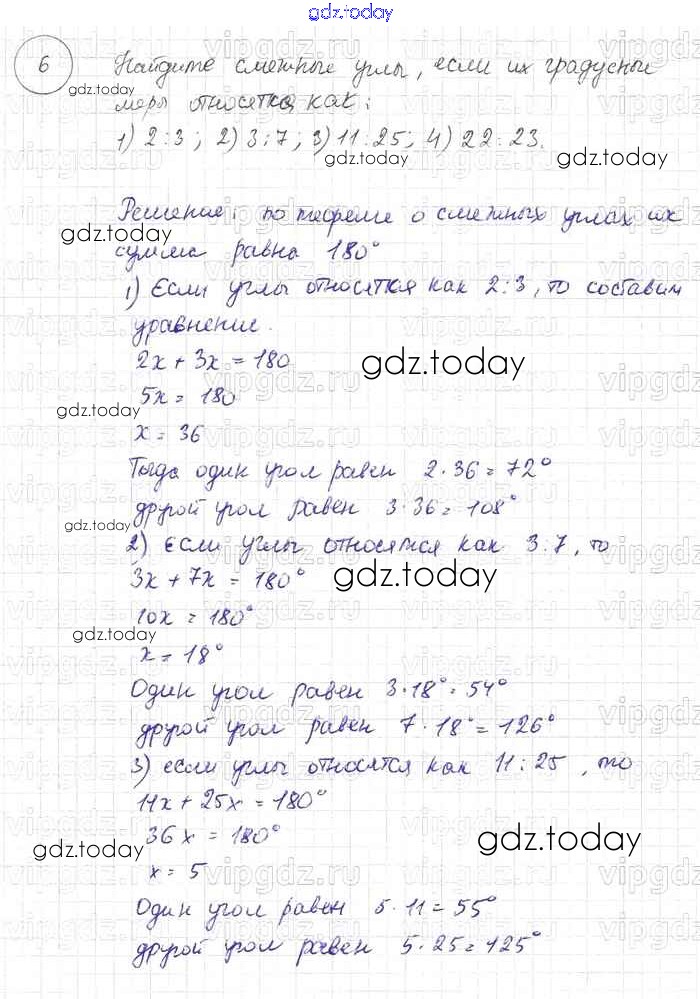 gdz.today
6 Найдите смежные углы, если их градусные
gdz.today
меры относятся как:
1) 2:3; 2) 3:7; 3) 11:25; 4) 22:23.
gdz.today gdz.today
Решение: по теореме о смежных углах их
gdz.today
сумма равна 180°
1) Если углы относятся как 2:3, то составим
уравнение.
2x + 3x = 180 gdz.today
5x = 180
gdz.today
x = 36
Тогда один угол равен 2·36=72°
другой угол равен 3·36=108°
gdz.today
2) если углы относятся как 3:7, то
3x + 7x = 180° gdz.today
10x = 180°
gdz.today
x = 18°
Один угол равен 3·18°=54°
другой угол равен 7·18°=126°
3) если углы относятся как 11:25, то
11x + 25x = 180°
36x = 180° gdz.today
gdz.today
x = 5
Один угол равен 5·11=55°
другой угол равен 5·25=125°